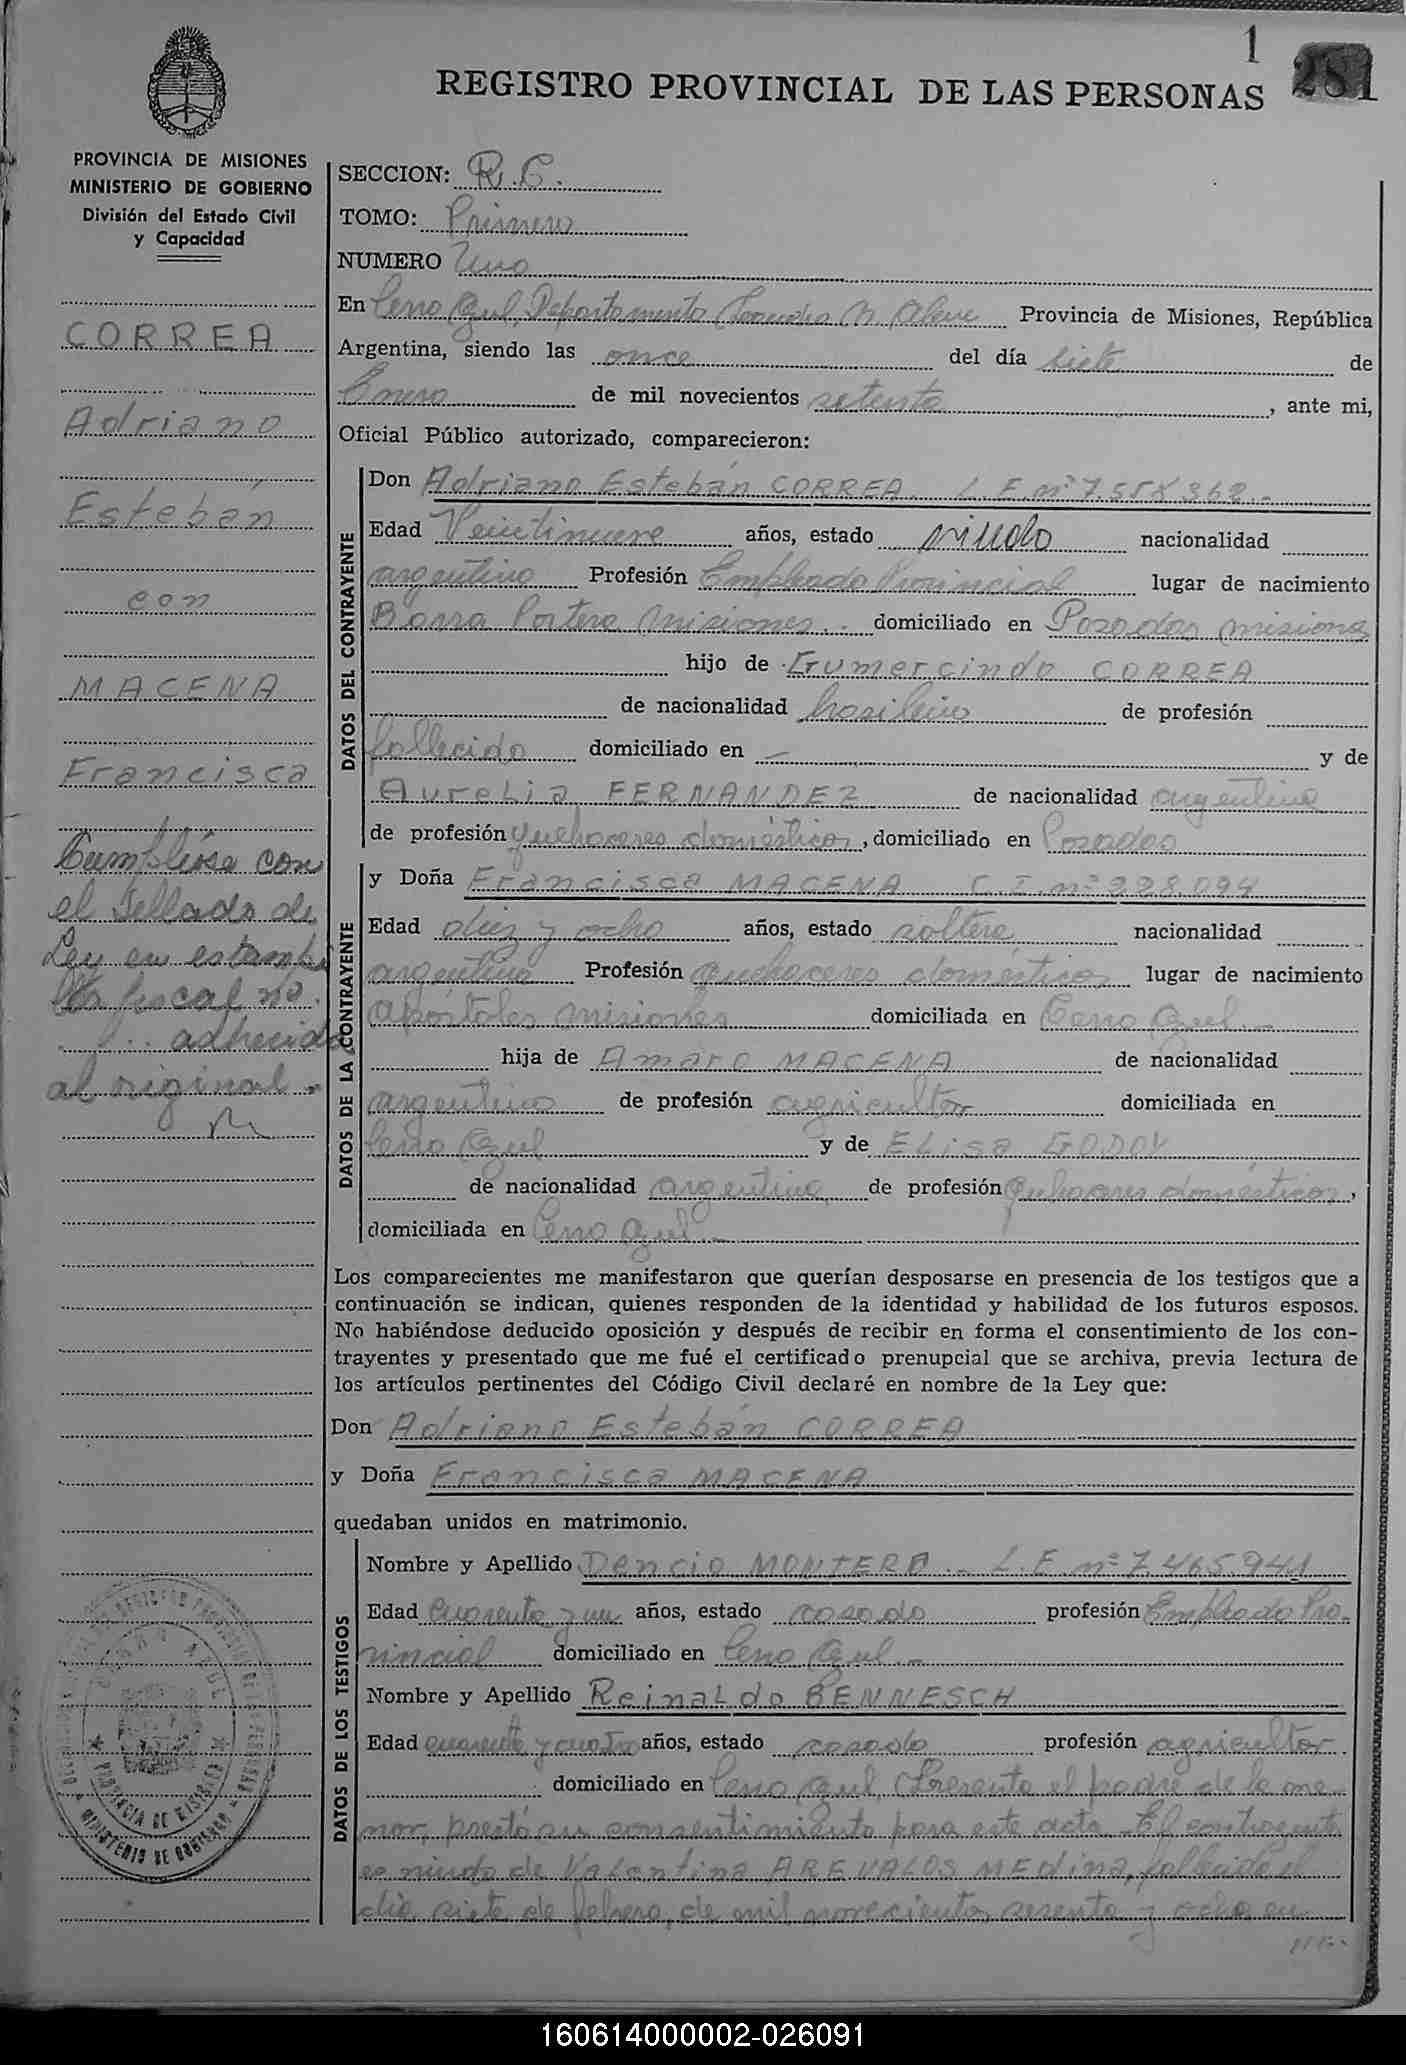 1
281
REGISTRO PROVINCIAL DE LAS PERSONAS
PROVINCIA DE MISIONES
MINISTERIO DE GOBIERNO
División del Estado Civil
y Capacidad
CORREA
Adriano
Estebán
con
MACENA
Francisca
Cumpliose con
el Sellado de
Ley en estampi
lla fiscal no.
adherida
al original.
SECCION: R.C.
TOMO: Primero
NUMERO Uno
En Cerro Azul, Departamento Leandro N. Alem Provincia de Misiones, República
Argentina, siendo las once del día siete de
Enero de mil novecientos setenta, ante mi,
Oficial Público autorizado, comparecieron:
DATOS DEL CONTRAYENTE
Don Adriano Estebán CORREA L.E. nº 7.558.362.-
Edad Veintinueve años, estado viudo nacionalidad
argentino Profesión Empleado Provincial lugar de nacimiento
Barra Portera Misiones domiciliado en Posadas Misiones
hijo de Gumercindo CORREA
de nacionalidad brasilero de profesión
fallecido domiciliado en — y de
Aurelia FERNANDEZ de nacionalidad argentina
de profesión quehaceres domésticos, domiciliado en Posadas
DATOS DE LA CONTRAYENTE
y Doña Francisca MACENA C.I. nº 228.094
Edad diez y ocho años, estado soltera nacionalidad
argentina Profesión quehaceres domésticos lugar de nacimiento
Apóstoles Misiones domiciliada en Cerro Azul.-
hija de Amaro MACENA de nacionalidad
argentino de profesión agricultor domiciliada en
Cerro Azul y de Elisa GODOY
de nacionalidad argentina de profesión quehaceres domésticos,
domiciliada en Cerro Azul.-
Los comparecientes me manifestaron que querían desposarse en presencia de los testigos que a
continuación se indican, quienes responden de la identidad y habilidad de los futuros esposos.
No habiéndose deducido oposición y después de recibir en forma el consentimiento de los con-
trayentes y presentado que me fué el certificado prenupcial que se archiva, previa lectura de
los artículos pertinentes del Código Civil declaré en nombre de la Ley que:
Don Adriano Estebán CORREA
y Doña Francisca MACENA
quedaban unidos en matrimonio.
DATOS DE LOS TESTIGOS
Nombre y Apellido Dencio MONTERO L.E. nº 7.465.941
Edad cuarenta y un años, estado casado profesión Empleado Pro-
vincial domiciliado en Cerro Azul.-
Nombre y Apellido Reinaldo BENNESCH
Edad cuarenta y cuatro años, estado casado profesión agricultor
domiciliado en Cerro Azul, Presente el padre de la me-
nor, prestó su consentimiento para este acto. El contrayente
es viudo de Valentina AREVALOS MEDina, fallecida el
día siete de febrero, de mil novecientos sesenta y ocho en
CERRO AZUL
PROVINCIA DE MISIONES
MINISTERIO DE GOBIERNO
160614000002-026091